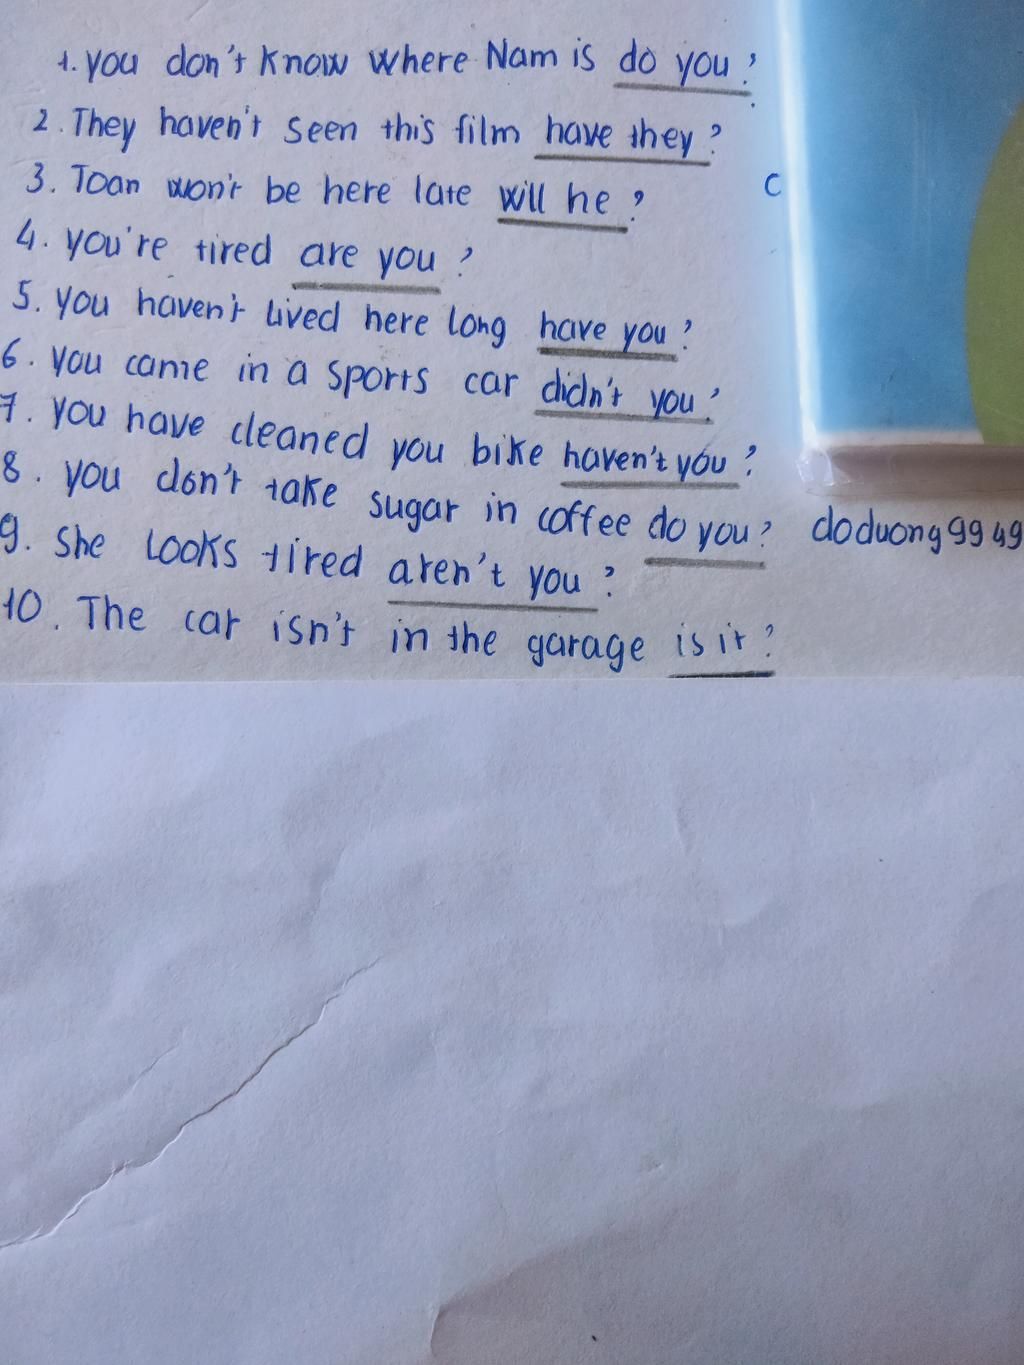 1. you don't know where Nam is do you?
2. They haven't seen this film have they?
3. Toan won't be here late will he?
C
4. you're tired are you?
5. you haven't lived here long have you?
6. you came in a sports car didn't you?
7. you have cleaned you bike haven't you?
8. you don't take sugar in coffee do you? doduong9949
9. She looks tired aren't you?
10. The car isn't in the garage is it?